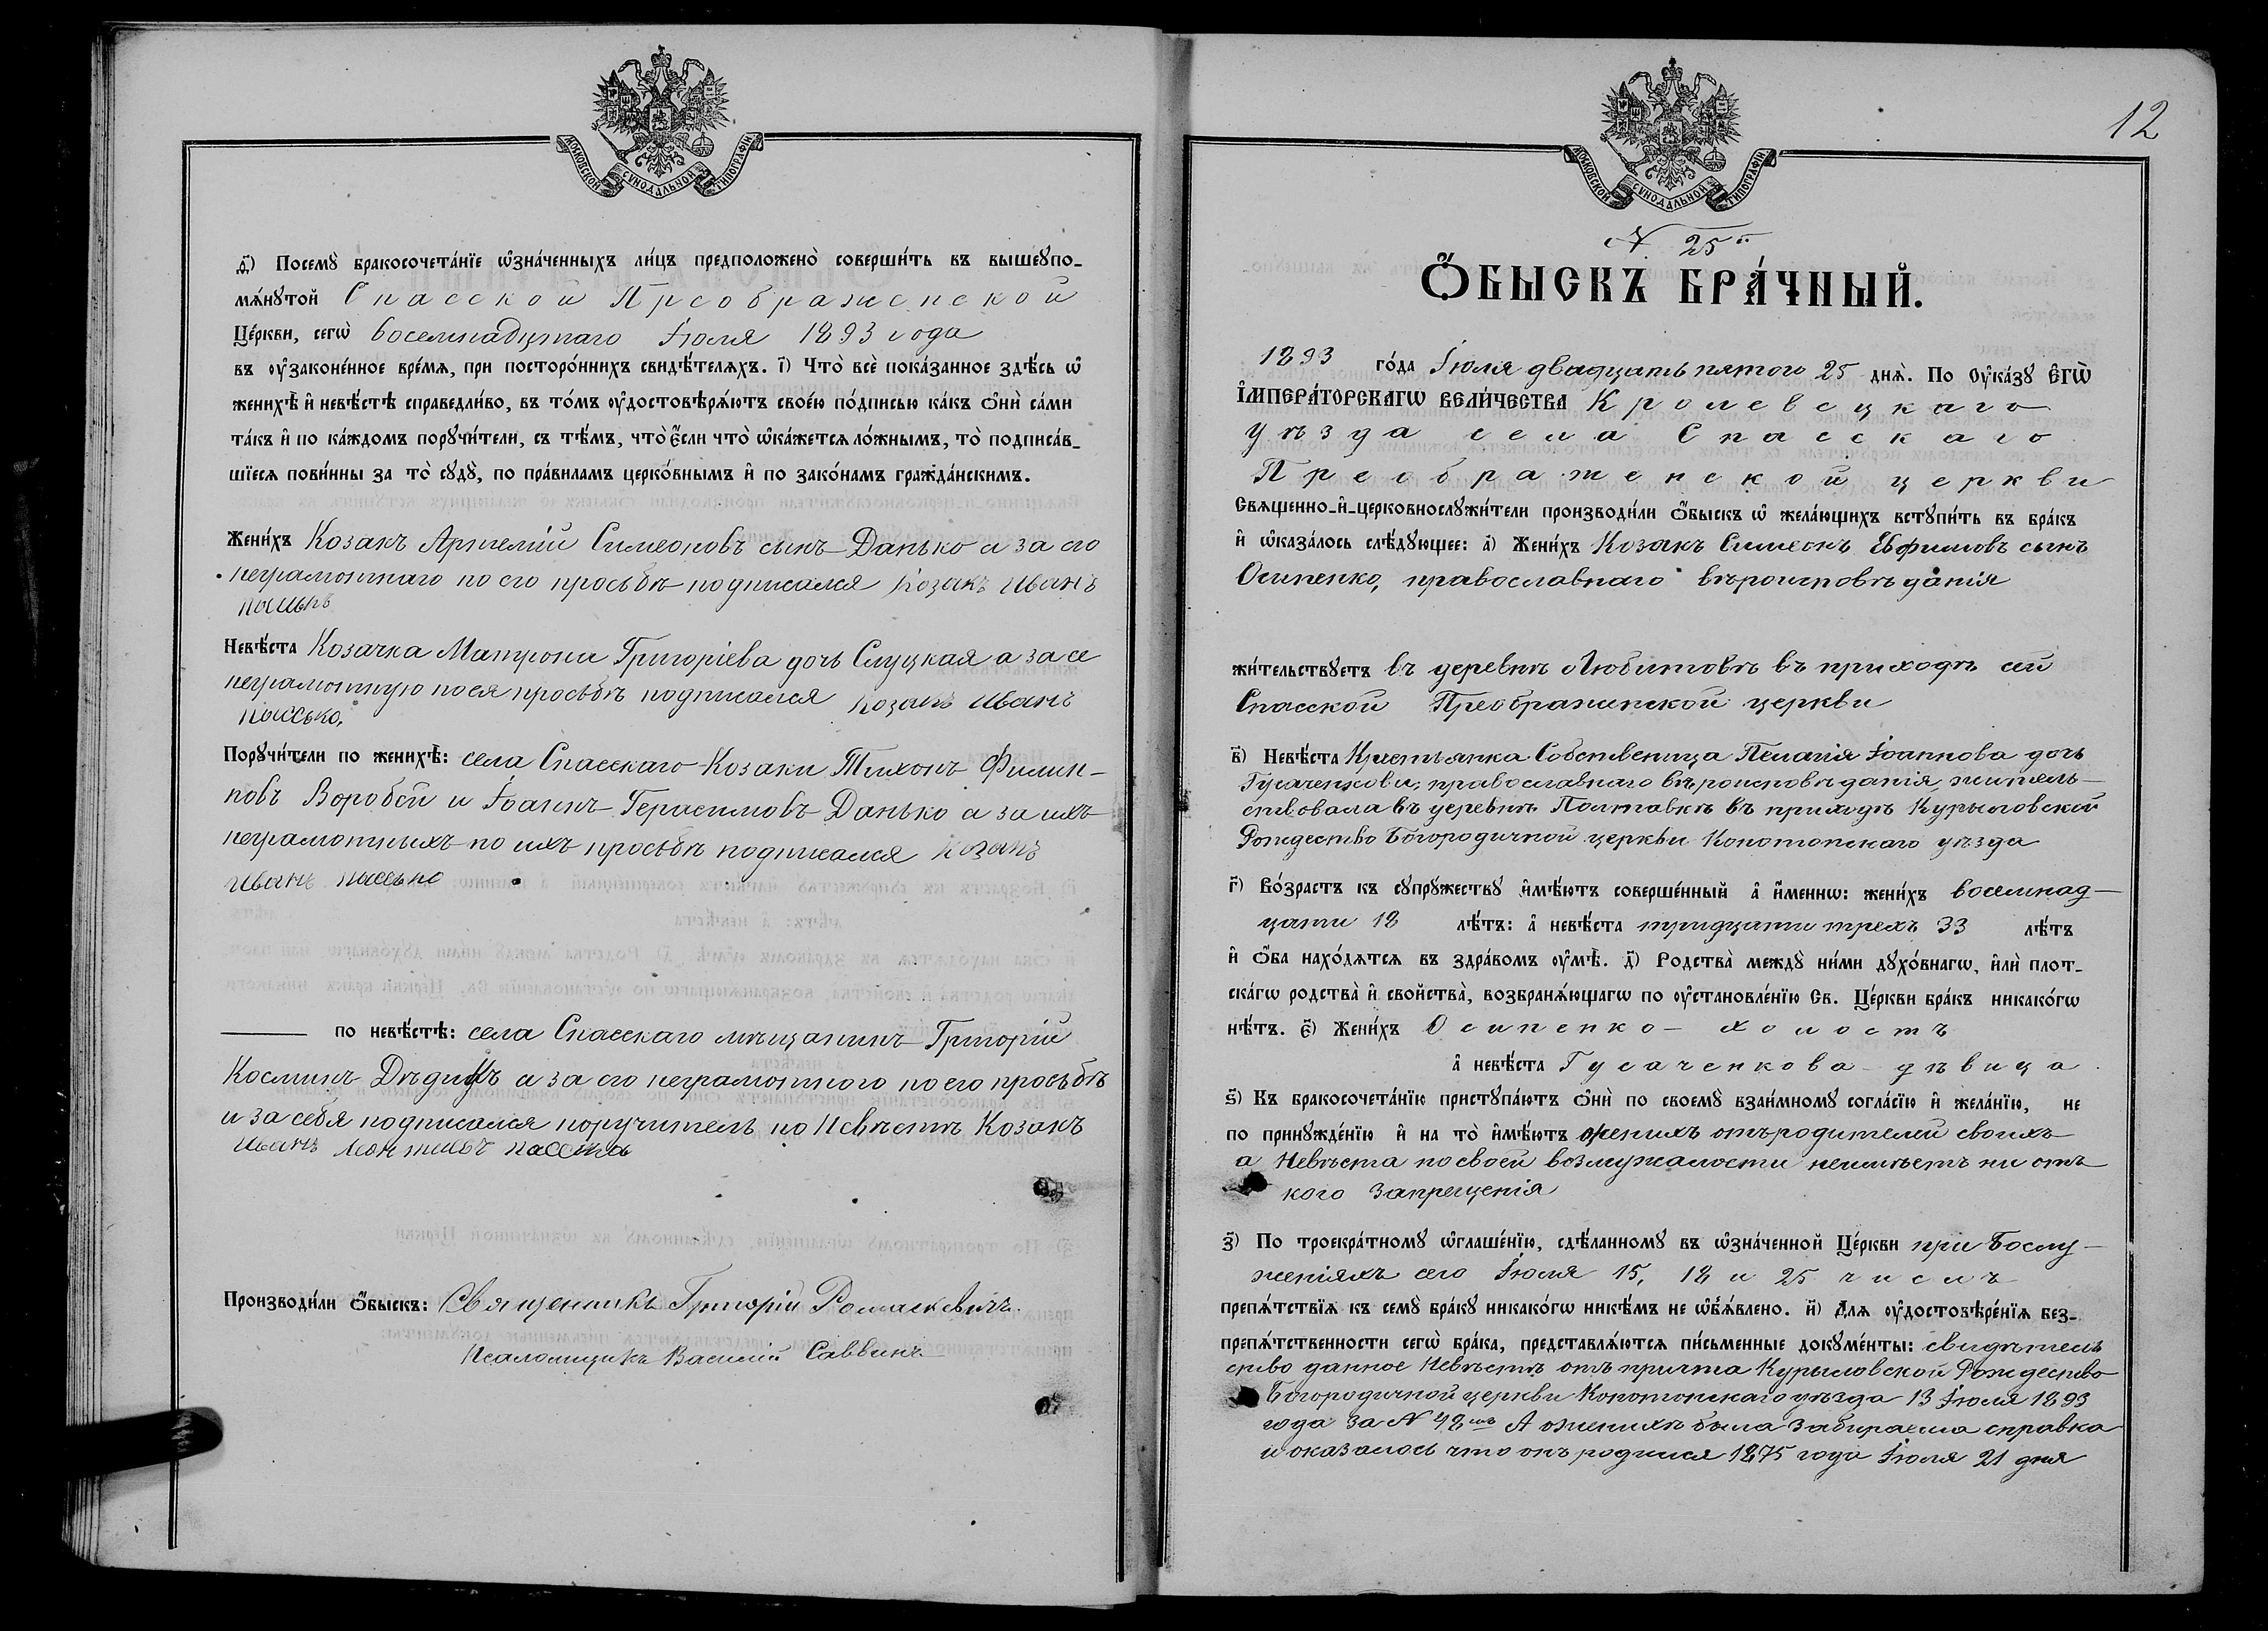 МОСКОВСКОЙ СѴНОДАЛЬНОЙ ТИПОГРАФІИ
д҃і) Посемꙋ̀ бракосочета́нїе ѡ҆зна́ченныхъ ли́цъ предположено̀ соверши́ть въ вышеꙋпо-
мѧ́нꙋтой Спасской Преображенской
Це́ркви, сегѡ̀ восемнадцатаго Іюля 1893 года
въ ᲂу҆законе́нное вре́мѧ, при посторо́ннихъ свидѣ́телѧхъ. і҃) Что̀ всѐ пока́занное здѣ́сь ѡ҆
женихѣ̀ и҆ невѣ́стѣ справедли́во, въ то́мъ ᲂу҆достовѣрѧ́ютъ свое́ю по́дписью ка́къ ѻ҆нѝ са́ми
та́къ и҆ по ка́ждомъ порꙋчи́тели, съ тѣ́мъ, что̀ є҆́сли что̀ ѡ҆ка́жетсѧ ло́жнымъ, то̀ подписа́в-
шїесѧ пови́нны за то̀ сꙋдꙋ̀, по пра́виламъ церко́внымъ и҆ по зако́намъ гражда́нскимъ.
Жени́хъ Козакъ Артемій Симеоновъ сынъ Данько а за его
неграмотнаго по его просьбѣ подписался Козакъ Иванъ
Невѣ́ста Козачка Матрона Григоріева дочь Слуцкая а за ее
неграмотную по ея просьбѣ подписался козакъ Иванъ
Пасько.
Порꙋчи́тели по женихѣ̀: села Спасскаго Козаки Тихонъ Филип-
повъ Воробей и Іоаннъ Герасимовъ Данько а за ихъ
неграмотныхъ по ихъ просьбѣ подписался Козакъ
Иванъ Пасько
по невѣ́стѣ: села Спасскаго мѣщанинъ Григорій
Косминъ а за его неграмотного по его просьбѣ
и за себя подписался поручитель по Невѣстѣ Козакъ
Иванъ
Производи́ли ѻ҆́быскъ: Священникъ Григорій Ромаскевичъ
Псаломщикъ Василій Саввинъ
12
МОСКОВСКОЙ СѴНОДАЛЬНОЙ ТИПОГРАФІИ
N. 25й
Ѻ҆́БЫСКЪ БРА́ЧНЫЙ.
1893 го́да Іюля двадцать пятого 25 днѧ̀. По Оу҆ка́зꙋ Є҆гѡ̀
І҆мпера́торскагѡ вели́чества Кролевецкаго
уѣзда села Спасскаго
Преображенской церкви
Свѧщенно-и҆-церковнослꙋжи́тели производи́ли ѻ҆́быскъ ѡ҆ жела́ющихъ встꙋпи́ть въ бра́къ
и҆ ѡ҆каза́лось слѣ́дꙋющее: а҃) Жени́хъ Козакъ Симеонъ Ефимовъ сынъ
Осипенко, православнаго вѣроисповѣданія
жи́тельствꙋетъ въ деревнѣ Любитовѣ въ приходѣ сей
Спасской Преображенской церкви
в҃) Невѣ́ста Крестьянка Собственица Пелагія Іоаннова дочь
Гусаченкова, православнаго вѣроисповѣданія, житель-
ствовала въ деревнѣ Полтавкѣ въ приходѣ Курыловской
Рождество Богородичной церкви Конотопскаго уѣзда
г҃) Во́зрастъ къ сꙋпрꙋ́жествꙋ и҆мѣ́ютъ соверше́нный а҆ и҆́меннѡ: жени́хъ восемнад-
цати 18 лѣ́тъ: а҆ невѣ́ста тридцати трехъ 33 лѣ́тъ
и҆ ѻ҆́ба нахо́дѧтсѧ въ здра́вомъ ᲂу҆мѣ̀. д҃) Родства̀ междꙋ̀ ни́ми дꙋхо́внагѡ, и҆лѝ плот-
ска́гѡ родства̀ и҆ свойства̀, возбранѧ́ющагѡ по ᲂу҆становле́нїю Св. Це́ркви бра́къ никако́гѡ
нѣ́тъ. є҃) Жени́хъ Осипенко - холостъ
а҆ невѣ́ста Гусаченкова - дѣвица
ѕ҃) Къ бракосочета́нїю пристꙋпа́ютъ ѻ҆нѝ по своемꙋ̀ взаи́мномꙋ согла́сїю и҆ жела́нїю, не
по принꙋжде́нїю и҆ на то̀ и҆мѣ́ютъ женихъ отъ родителей своихъ
а Невѣста по своей возмужалости неимѣетъ ни отъ
кого запрещенія
з҃) По троекра́тномꙋ ѡ҆глаше́нїю, сдѣ́ланномꙋ въ ѡ҆зна́ченной Це́ркви при Бослу-
женіяхъ сего Іюля 15, 18 и 25 числъ
препѧ́тствїѧ къ семꙋ̀ бра́кꙋ никако́гѡ никѣ́мъ не ѡ҆б̾ѧ́влено. и҃) Длѧ ᲂу҆достовѣре́нїѧ без-
препѧ́тственности сегѡ̀ бра́ка, представлѧ́ютсѧ пи́сьменные докꙋме́нты: свидѣтель
ство данное Невѣстѣ отъ причта Курыловской Рождество
Богородичной церкви Конотопскаго уѣзда 13 Іюля 1893
года за N 42мъ А о женихѣ была забираема справка
и оказалось что онъ родился 1875 года Іюля 21 дня